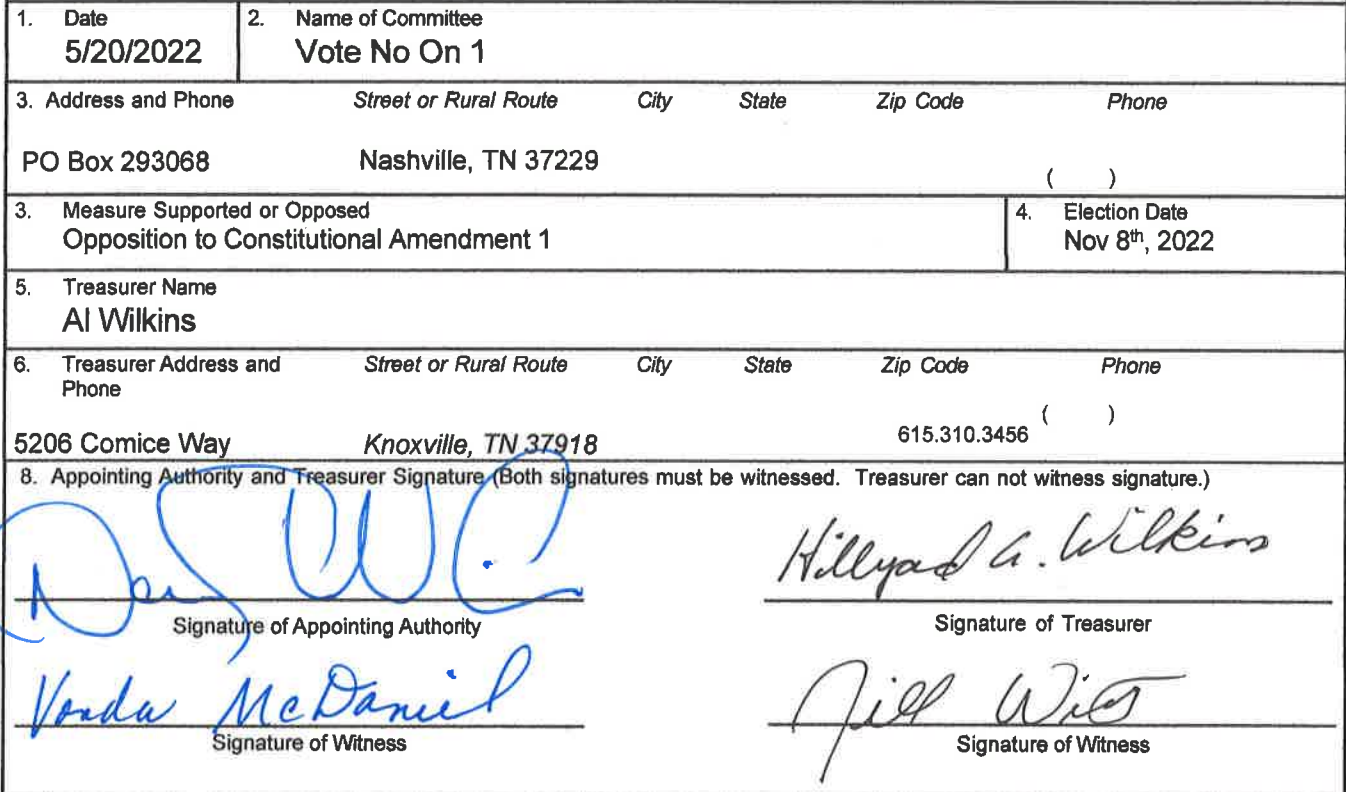 1. Date
5/20/2022
2. Name of Committee
Vote No On 1
3. Address and Phone Street or Rural Route City State Zip Code Phone
PO Box 293068 Nashville, TN 37229 ( )
3. Measure Supported or Opposed
Opposition to Constitutional Amendment 1
4. Election Date
Nov 8th, 2022
5. Treasurer Name
Al Wilkins
6. Treasurer Address and Phone Street or Rural Route City State Zip Code Phone
5206 Comice Way Knoxville, TN 37918 615.310.3456 ( )
8. Appointing Authority and Treasurer Signature (Both signatures must be witnessed. Treasurer can not witness signature.)
Hillyard A. Wilkins
Signature of Appointing Authority Signature of Treasurer
Vonda McDaniel Jill Witt
Signature of Witness Signature of Witness